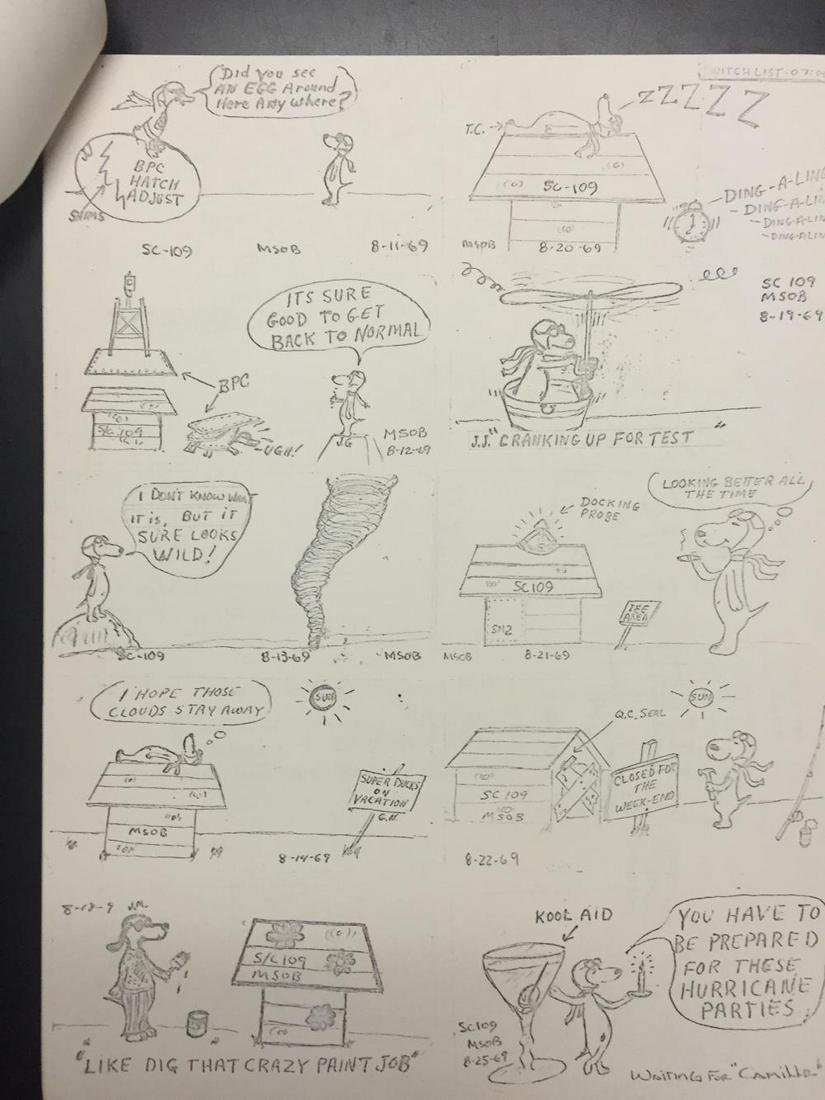 Did you see
AN EGG Around
Here Any where?
BPC
HATCH
ADJUST
SHIMS
SC-109 MSOB 8-11-69
ITS SURE
GOOD TO GET
BACK TO NORMAL
BPC
S/C 109
UGH!
J.G
MSOB
8-12-69
I DONT KNOW WHAT
IT is, BUT iT
SURE LOOKS
WILD!
SC-109 8-13-69 MSOB
I HOPE THOSE
CLOUDS STAY AWAY
SUN
SUPER DUCKS
ON
VACATION
G.H.
MSOB
8-14-69
8-18-9 J.M.
S/C 109
MSOB
"LIKE DIG THAT CRAZY PAINT JOB"
SWITCH LIST-07:0
ZZZZZ
T.C.
SC-109
DING-A-LING
-DING-A-LIN
-DING-A-LIN
-DING-A-LIN
MSOB 8-20-69
SC 109
MSOB
8-19-69
J.J. "CRANKING UP FOR TEST"
LOOKING BETTER ALL
THE TIME
DOCKING
PROBE
SC109
SM2
TEE
AREA
MSOB 8-21-69
Q.C. SEAL
SUN
SC 109
MSOB
CLOSED FOR
THE
WEEK-END
8-22-69
KOOL AID
YOU HAVE TO
BE PREPARED
FOR THESE
HURRICANE
PARTIES
SC109
MSOB
8-25-69
WAITING FOR "CAMILLE"